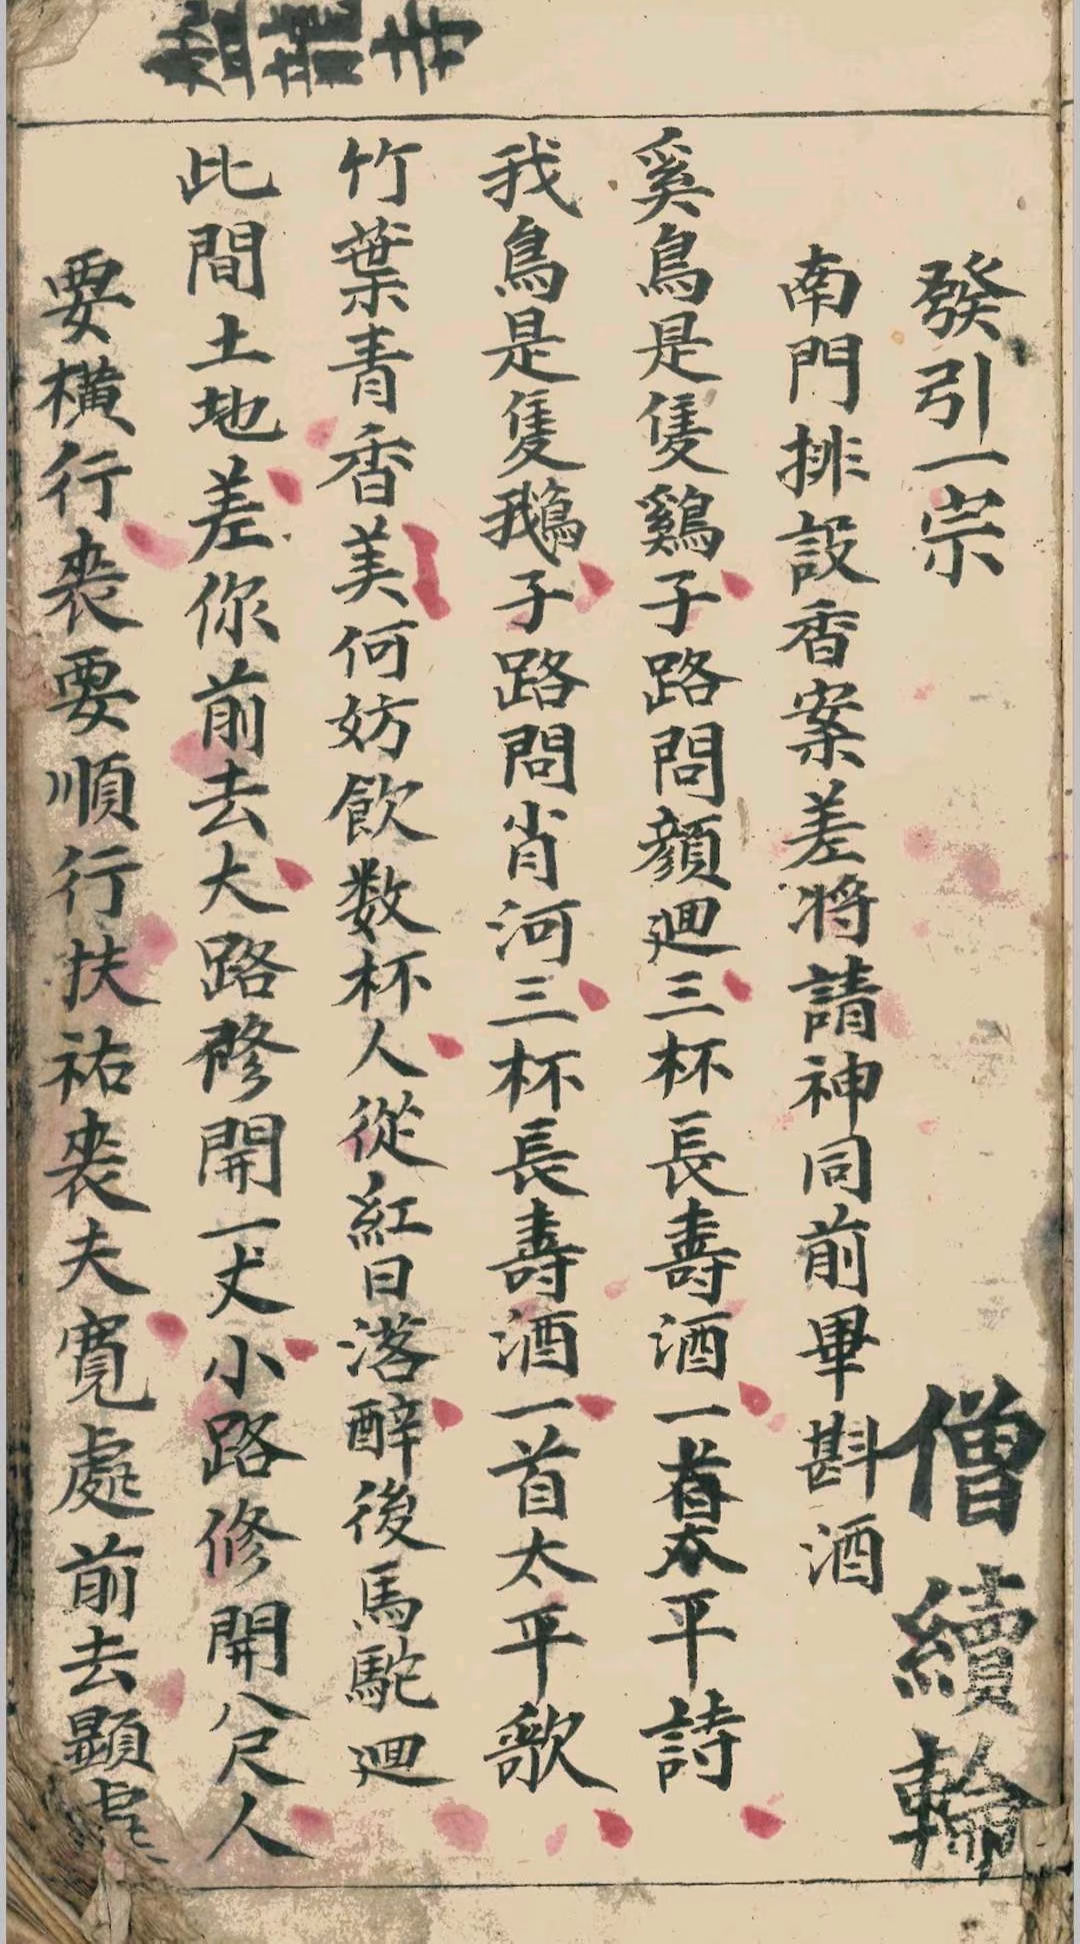 盤龍寺
發引一宗
僧續輪
南門排設香案差將請神同前畢斟酒
奚鳥是隻鷄子路問顔廻三杯長壽酒一首太平詩
我鳥是隻鵝子路問肖河三杯長壽酒一首太平歌
竹葉青香美何妨飲数杯人從紅日落醉後馬駝廻
此間土地差你前去大路修開一丈小路修開八尺人
要横行丧要順行扶祐丧夫寬處前去顕處